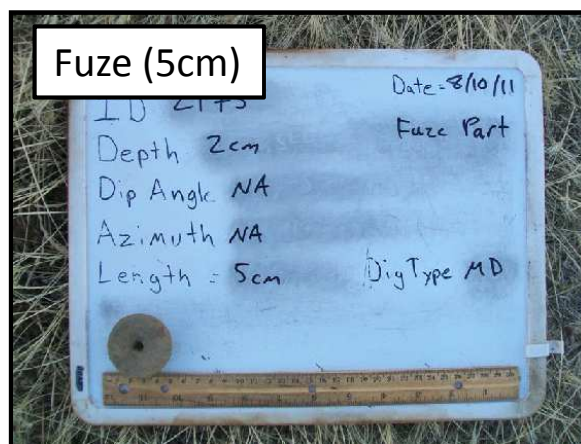 Fuze (5cm)
Date=8/10/11
ID
Fuze Part
Depth 2cm
Dip Angle NA
Azimuth NA
Length = 5cm DigType MD